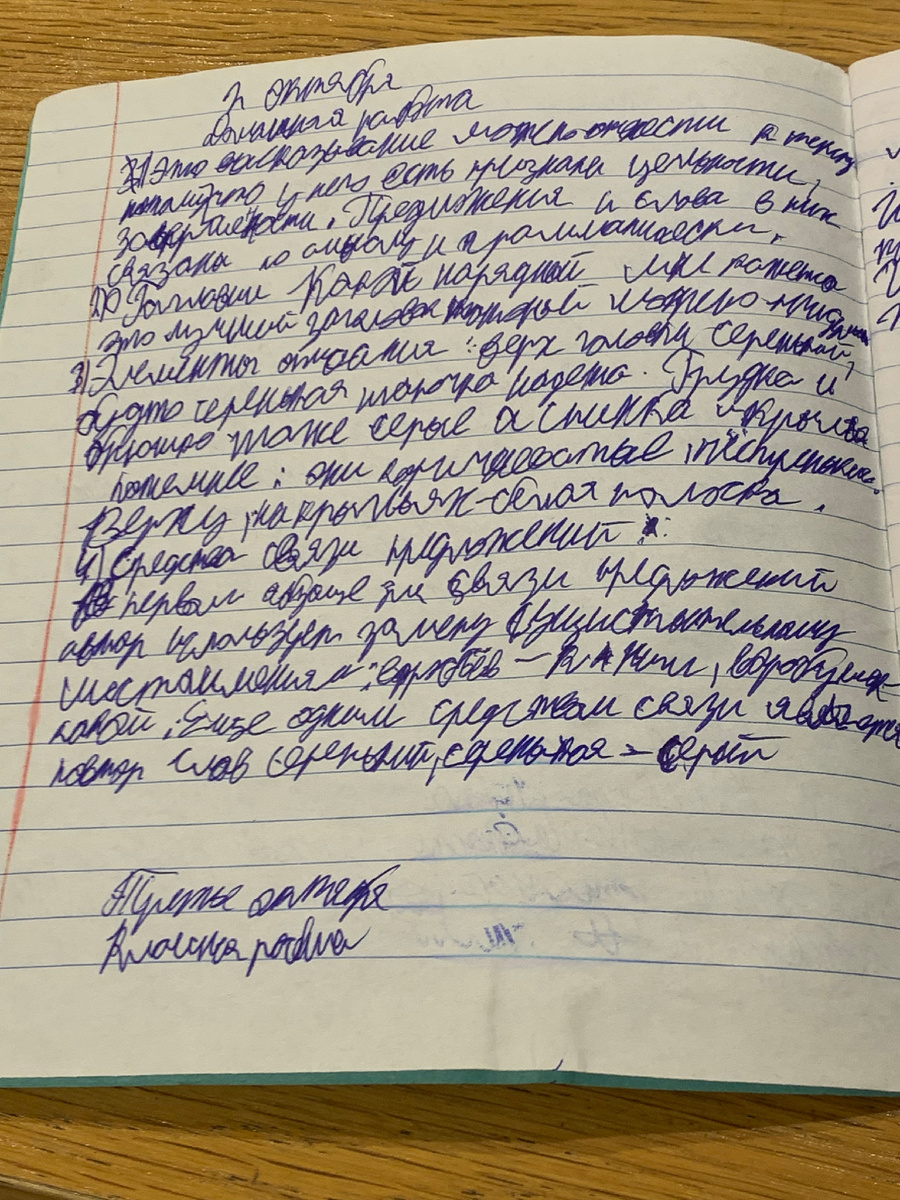 2 октября
Домашняя работа
1) Это высказывание можно отнести к тексту
потому что у него есть признаки цельности,
завершённости. Предложения и слова в них
связаны по смыслу и грамматически.
2) Какой нарядный мне кажется
это лучший заголовок который можно
3) Элементы описания: верх головы серенький,
будто серенькая шапочка надета. Грудка и
брюшко тоже серые а спинка и крылья
потемнее: они коричневатые,
Вверху, на крыльях-белая полоска.
4) Средства связи предложений:
В первом абзаце для связи предложений
автор использует замену существительному
местоимения
какой. Ещё одним средством связи является
повтор слов серенький, серенькая - серый
Третье октября
Классная работа